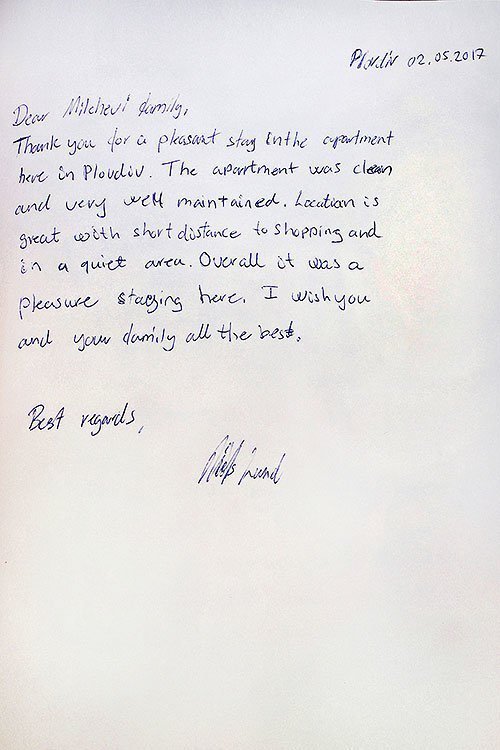 Plovdiv 02.05.2017
Dear Milchevi family,
Thank you for a pleasant stay in the apartment
here in Plovdiv. The apartment was clean
and very well maintained. Location is
great with short distance to shopping and
in a quiet area. Overall it was a
pleasure staying here. I wish you
and your family all the best.
Best regards,
Niels Lund